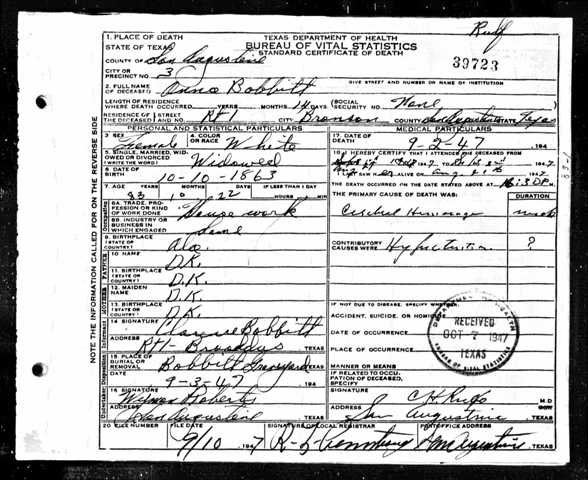 Ruff
TEXAS DEPARTMENT OF HEALTH
BUREAU OF VITAL STATISTICS
STANDARD CERTIFICATE OF DEATH
39723
1. PLACE OF DEATH
STATE OF TEXAS
COUNTY OF San Augustine
CITY OR PRECINCT NO. 3
GIVE STREET AND NUMBER OR NAME OF INSTITUTION
2. FULL NAME OF DECEASED Anna Bobbitt
LENGTH OF RESIDENCE WHERE DEATH OCCURRED YEARS MONTHS 14 DAYS (SOCIAL SECURITY NO. None
RESIDENCE OF THE DECEASED STREET AND NO. Rt 1 Bronson San Augustine Texas
PERSONAL AND STATISTICAL PARTICULARS
3. SEX Female
4. COLOR OR RACE White
5. SINGLE, MARRIED, WIDOWED OR DIVORCED (WRITE THE WORD) Widowed
6. DATE OF BIRTH 10-10-1863
7. AGE YEARS MONTHS DAYS IF LESS THAN 1 DAY
83 10 22 HOURS MIN
8A. TRADE, PROFESSION OR KIND OF WORK DONE House work
8B. INDUSTRY OR BUSINESS IN WHICH ENGAGED same
9. BIRTHPLACE (STATE OR COUNTRY) Ala.
FATHER
10 NAME D.K.
11. BIRTHPLACE (STATE OR COUNTRY) D.K.
MOTHER
12. MAIDEN NAME D.K.
13. BIRTHPLACE (STATE OR COUNTRY) D.K.
Informant
14 SIGNATURE Clarence Bobbitt
ADDRESS Rt 1- Broaddus TEXAS
15. PLACE OF BURIAL OR REMOVAL Bobbitt Graveyard TEXAS
DATE 9-3-47 194
Undertaker
16 SIGNATURE Wyman Roberts
ADDRESS San Augustine TEXAS
MEDICAL PARTICULARS
17. DATE OF DEATH 9-2-47 194
18. I HEREBY CERTIFY THAT I ATTENDED THE DECEASED FROM
194 7 TO 194 7
I LAST SAW ALIVE ON 194 7
THE DEATH OCCURRED ON THE DATE STATED ABOVE AT M.
THE PRIMARY CAUSE OF DEATH WAS:
DURATION
Cerebral Hemorrhage
CONTRIBUTORY CAUSES WERE Hypertension ?
IF NOT DUE TO DISEASE, SPECIFY WHETHER:
ACCIDENT, SUICIDE, OR HOMICIDE
DATE OF OCCURRENCE
PLACE OF OCCURRENCE
MANNER OR MEANS
IF RELATED TO OCCUPATION OF DECEASED, SPECIFY
DEPARTMENT OF HEALTH
RECEIVED
OCT 7 1947
TEXAS
BUREAU OF VITAL STATISTICS
SIGNATURE M.D.
ADDRESS San Augustine TEXAS
20 FILE NUMBER
FILE DATE 9/10 1947
SIGNATURE OF LOCAL REGISTRAR
POSTOFFICE ADDRESS San Augustine TEXAS
NOTE THE INFORMATION CALLED FOR ON THE REVERSE SIDE